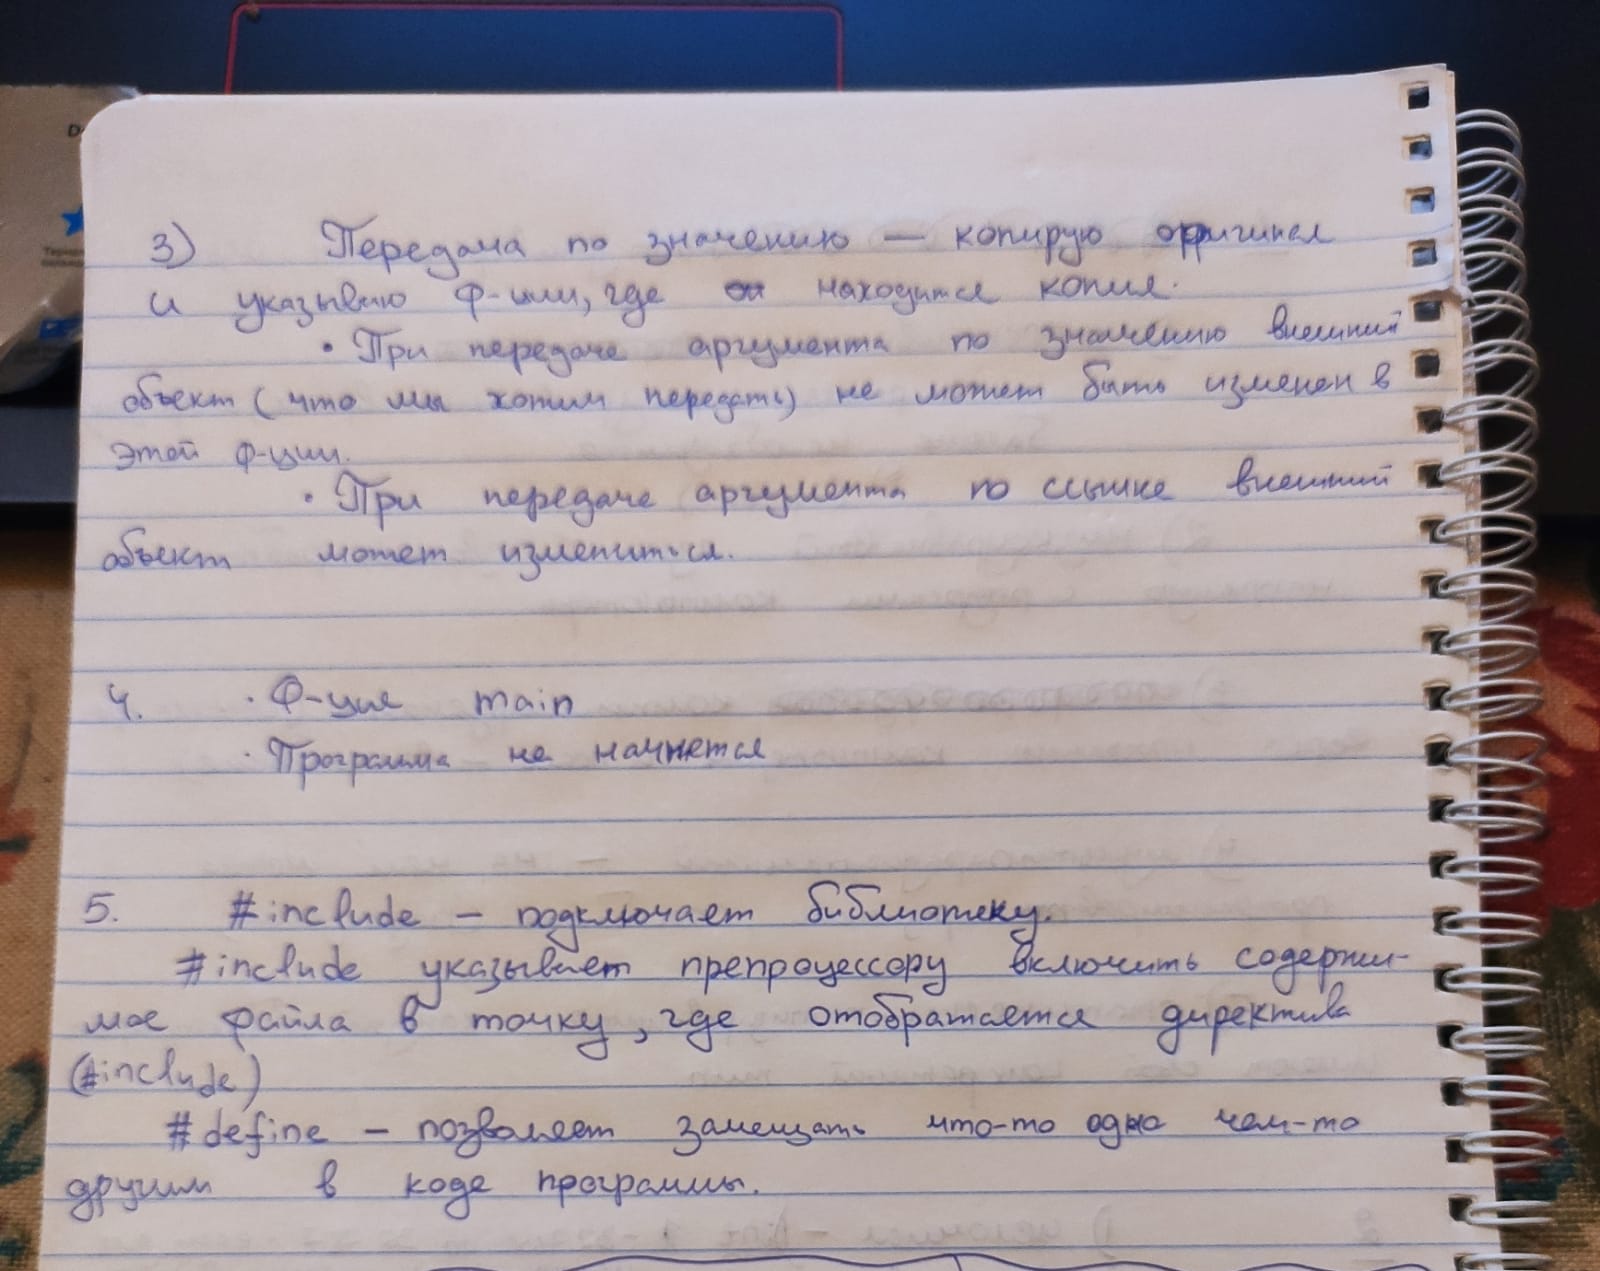 3) Передача по значению — копирую оригинал
и указываю ф-ции, где находится копия.
• При передаче аргумента по значению внешний
объект (что мы хотим передать) не может быть изменен в
этой ф-ции.
• При передаче аргумента по ссылке внешний
объект может измениться.
4. · Ф-ция main
· Программа не начнется
5. #include — подключает библиотеку.
#include указывает препроцессору включить содержи-
мое файла в точку, где отображается директива
(#include)
#define — позволяет замещать что-то одно чем-то
другим в коде программы.